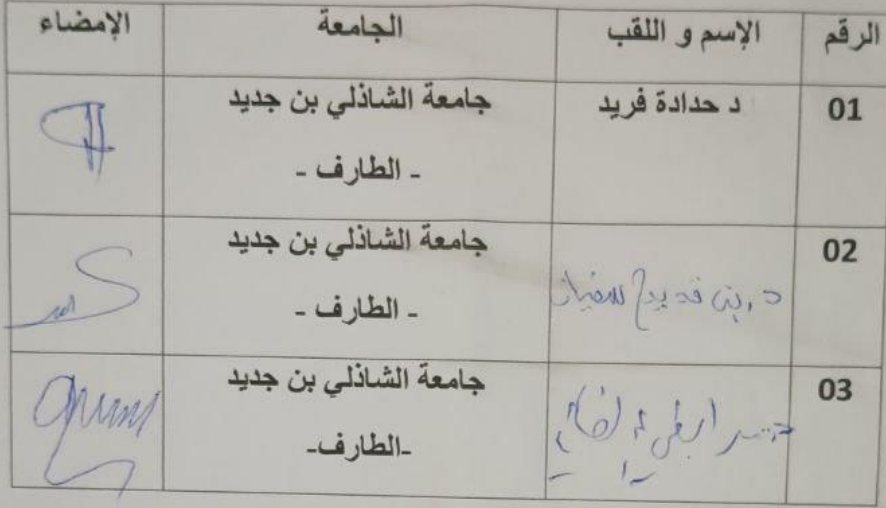 الرقم الإسم و اللقب الجامعة الإمضاء
01 د حدادة فريد جامعة الشاذلي بن جديد
- الطارف -
02 د. بن قديدح سفيان جامعة الشاذلي بن جديد
- الطارف -
03 جامعة الشاذلي بن جديد
-الطارف-